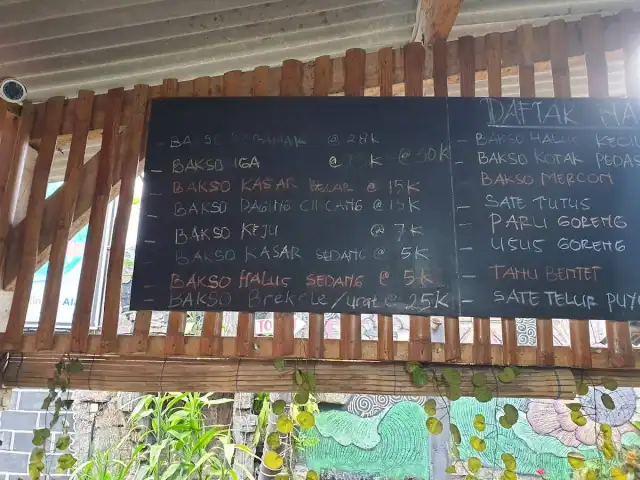 - BAKSO @ 28K
- BAKSO IGA @ K - @ 50K
- BAKSO KASAR BESAR @ 15K
- BAKSO DAGING CINCANG @ 15K
- BAKSO KEJU @ 7K
- BAKSO KASAR SEDANG @ 5K
- BAKSO HALUS SEDANG @ 5K
- BAKSO Brekele/urat @ 25K
DAFTAR
- BAKSO HALUS KECIL
- BAKSO KOTAK PEDAS
- BAKSO MERCON
- SATE TUTUS
- PARU GORENG
- USUS GORENG
- TAHU BENTET
- SATE TELUR PUYU